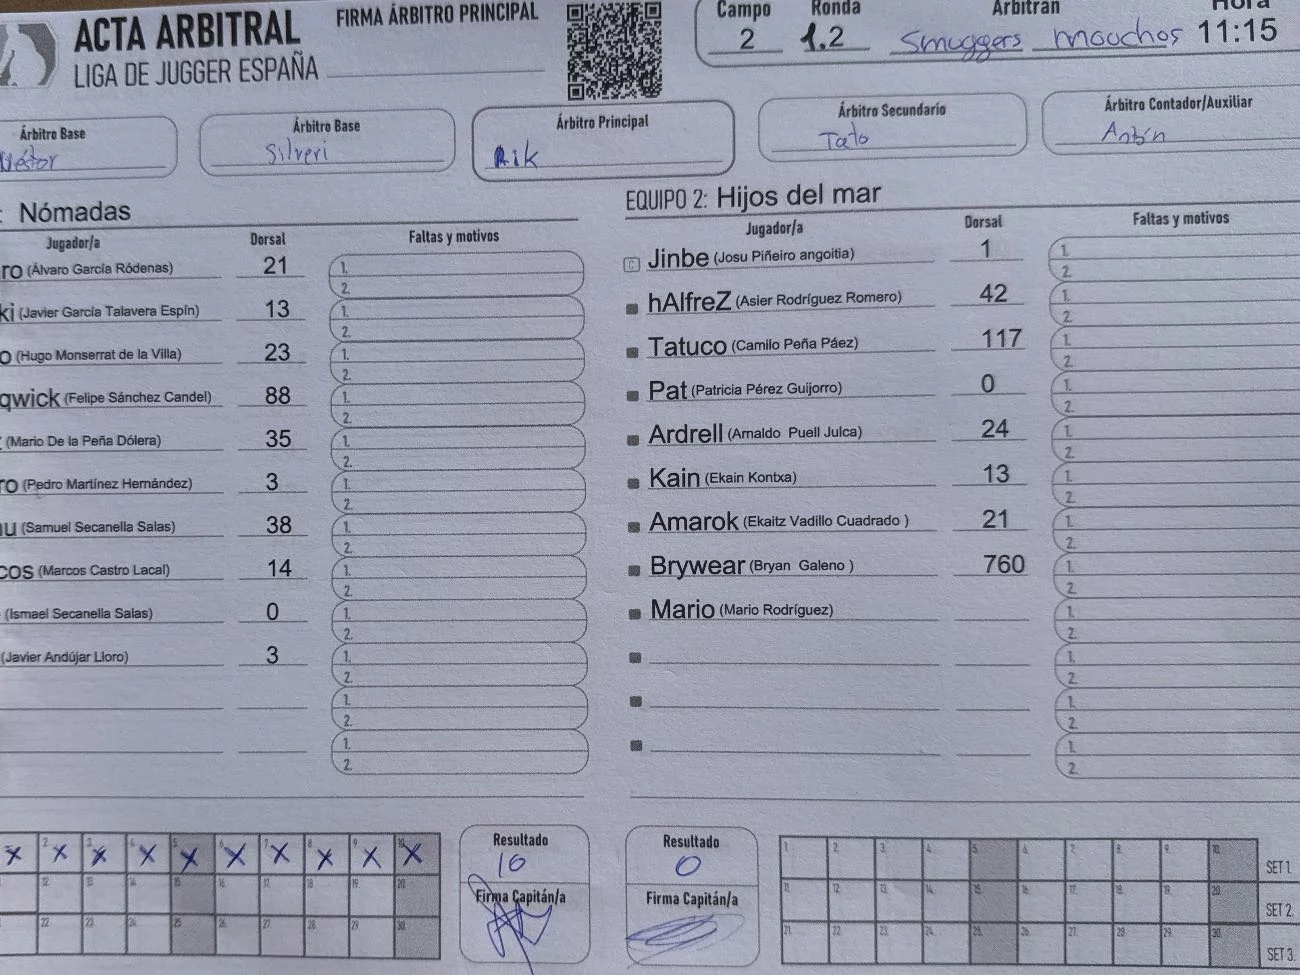 ACTA ARBITRAL
LIGA DE JUGGER ESPAÑA
FIRMA ÁRBITRO PRINCIPAL
Campo Ronda Arbitran Hora
2 1.2 Smuggers mouchos 11:15
Árbitro Base
Néstor
Árbitro Base
Silveri
Árbitro Principal
Rik
Árbitro Secundario
Tato
Árbitro Contador/Auxiliar
Antón
: Nómadas
Jugador/a Dorsal Faltas y motivos
ro (Álvaro García Ródenas) 21 1.
2.
ki (Javier García Talavera Espín) 13 1.
2.
o (Hugo Monserrat de la Villa) 23 1.
2.
qwick (Felipe Sánchez Candel) 88 1.
2.
(Mario De la Peña Dólera) 35 1.
2.
ro (Pedro Martínez Hernández) 3 1.
2.
u (Samuel Secanella Salas) 38 1.
2.
cos (Marcos Castro Lacal) 14 1.
2.
(Ismael Secanella Salas) 0 1.
2.
(Javier Andújar Lloro) 3 1.
2.
1.
2.
1.
2.
EQUIPO 2: Hijos del mar
Jugador/a Dorsal Faltas y motivos
C Jinbe (Josu Piñeiro angoitia) 1 1.
2.
hAlfreZ (Asier Rodríguez Romero) 42 1.
2.
Tatuco (Camilo Peña Páez) 117 1.
2.
Pat (Patricia Pérez Guijorro) 0 1.
2.
Ardrell (Arnaldo Puell Julca) 24 1.
2.
Kain (Ekain Kontxa) 13 1.
2.
Amarok (Ekaitz Vadillo Cuadrado ) 21 1.
2.
Brywear (Bryan Galeno ) 760 1.
2.
Mario (Mario Rodríguez) 1.
2.
1.
2.
1.
2.
1.
2.
2 3 4 5 6 7 8 9 10
X X X X X X X X X X
12 13 14 15 16 17 18 19 20
22 23 24 25 26 27 28 29 30
Resultado
10
Firma Capitán/a
Resultado
0
Firma Capitán/a
1 2 3 4 5 6 7 8 9 10 SET 1.
11 12 13 14 15 16 17 18 19 20 SET 2.
21 22 23 24 25 26 27 28 29 30 SET 3.